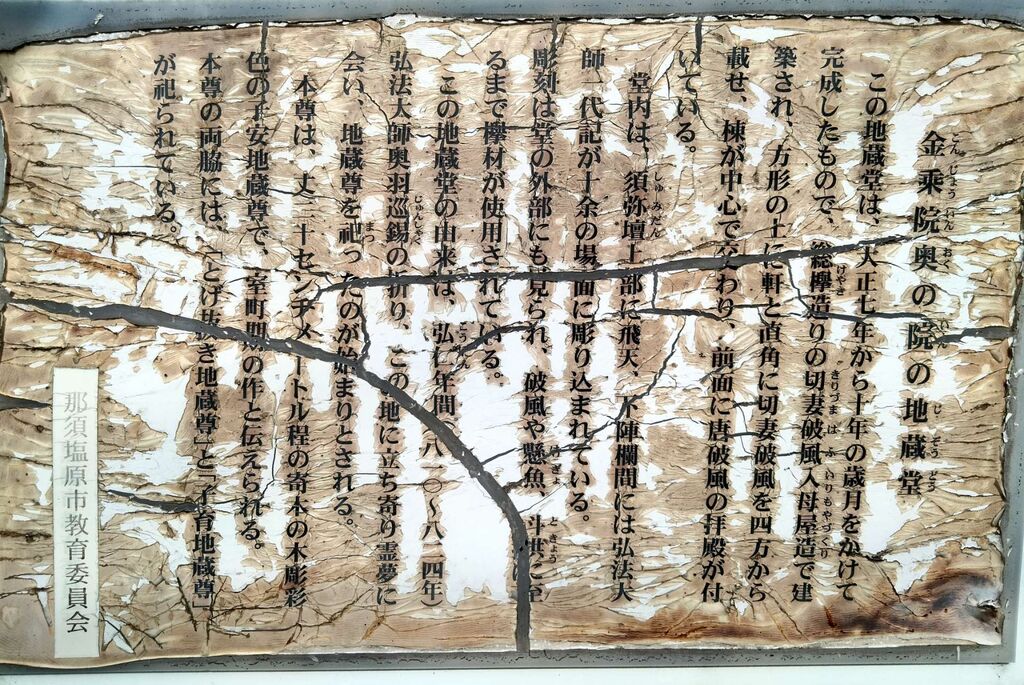 金乗院奥の院の地蔵堂
この地蔵堂は、大正七年から十年の歳月をかけて
完成したもので、総欅造りの切妻破風入母屋造で建
築され、方形の土に軒と直角に切妻破風を四方から
載せ、棟が中心で交わり、前面に唐破風の拝殿が付
いている。
堂内は、須弥壇上部に飛天、下陣欄間には弘法大
師一代記が十余の場面に彫り込まれている。
彫刻は堂の外部にも見られ、破風や懸魚、斗栱に至
るまで欅材が使用されている。
この地蔵堂の由来は、弘仁年間(八一〇〜八二四年)
弘法大師奥羽巡錫の折り、この地に立ち寄り霊夢に
会い、地蔵尊を祀ったのが始まりとされる。
本尊は、丈二十センチメートル程の寄木の木彫彩
色の子安地蔵尊で、室町期の作と伝えられる。
本尊の両脇には、「とげ抜き地蔵尊」と「子育地蔵尊」
が祀られている。
那須塩原市教育委員会